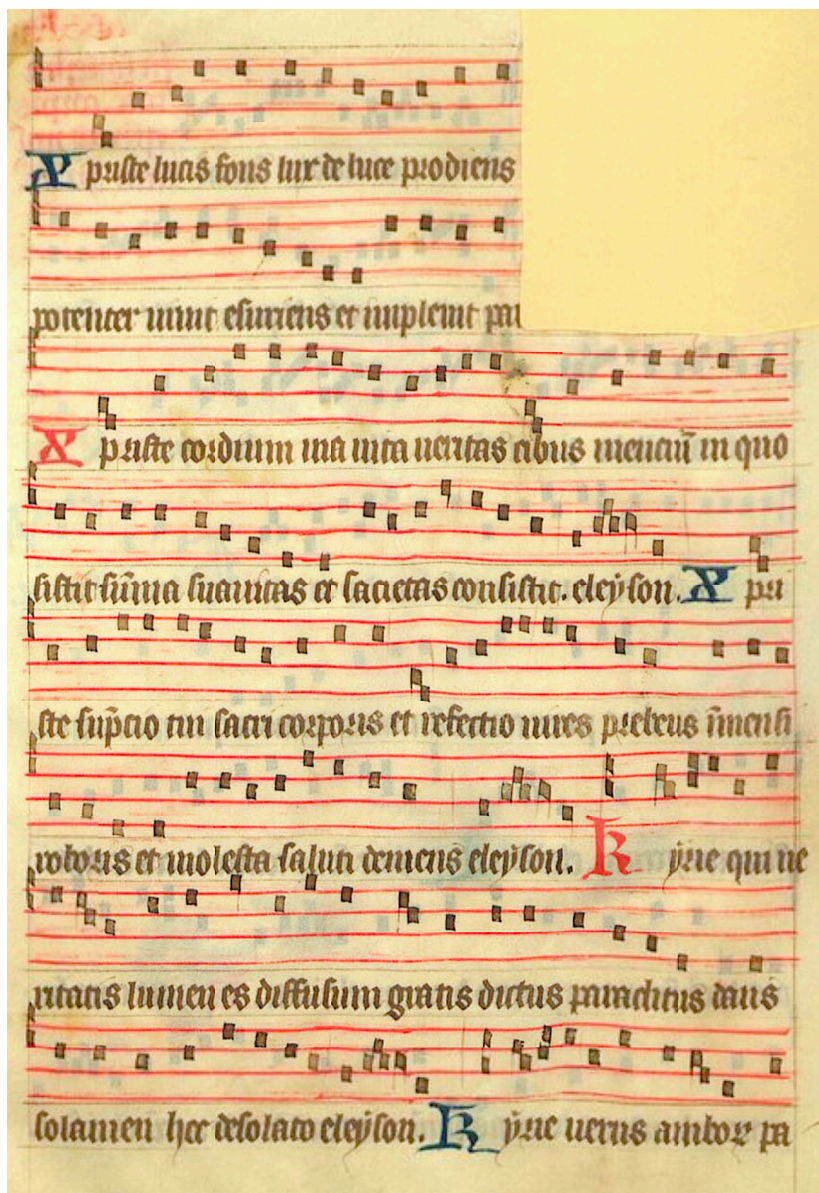 Xpriste lucis fons lux de luce prodiens
potenter uiuit esuriens et impleuit pa
Xpriste cordium uia uita ueritas cibus menciū in quo
sistit sūma suauitas et sacietas consistit. eleyson. Xpri
ste sūpcio tui sacri corporis et refectio uires prebens īmensi
roboris et molesta saluti demens eleyson. Kyrie qui ue
ritatis lumen es diffusum gratis dictus paraclitus dans
solamen hec desolato eleyson. Kyrie uerus ambor pa